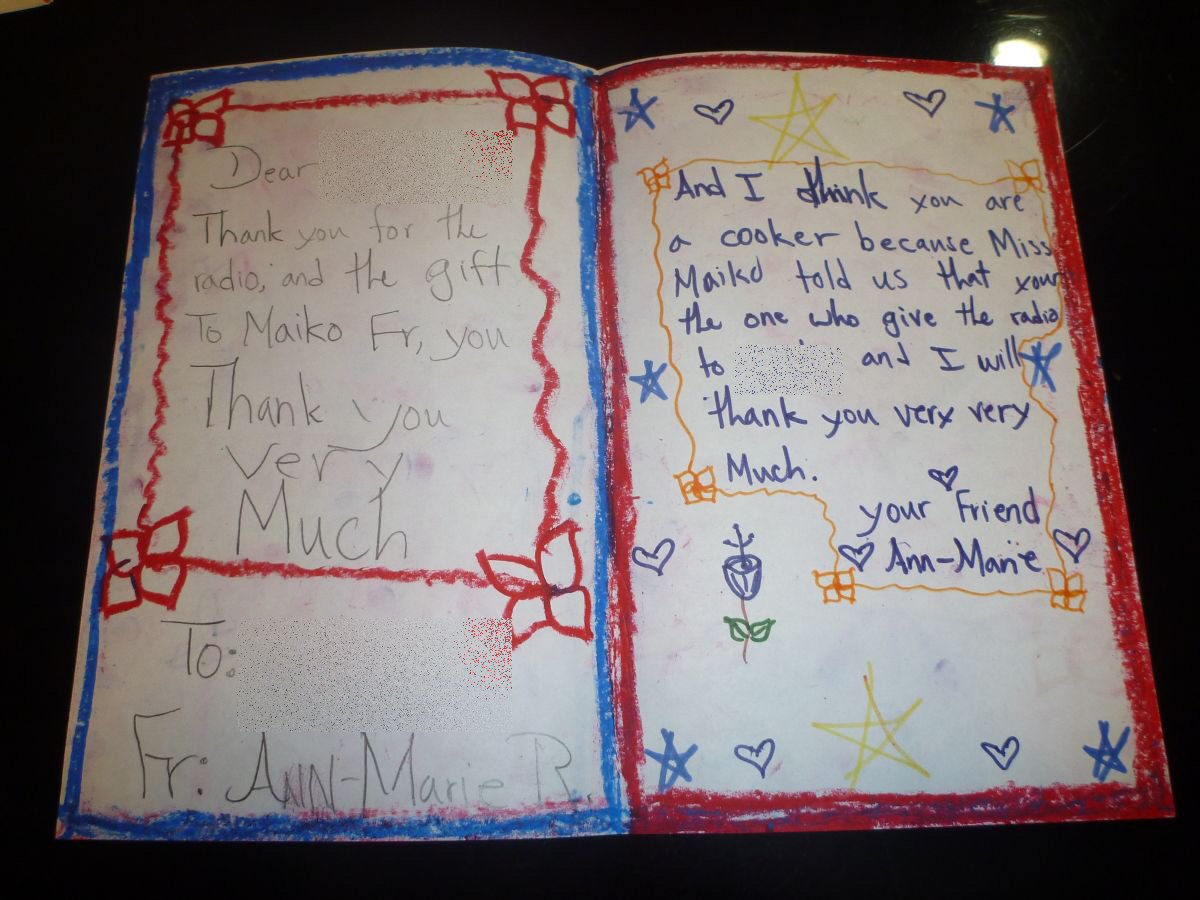 Dear
Thank you for the
radio, and the gift
To Maiko Fr, you
Thank you
very
Much
To:
Fr: ANN-Marie R.
And I think you are
a cooker because Miss
Maiko told us that your
the one who give the radio
to and I will
thank you very very
Much.
your Friend
Ann-Marie